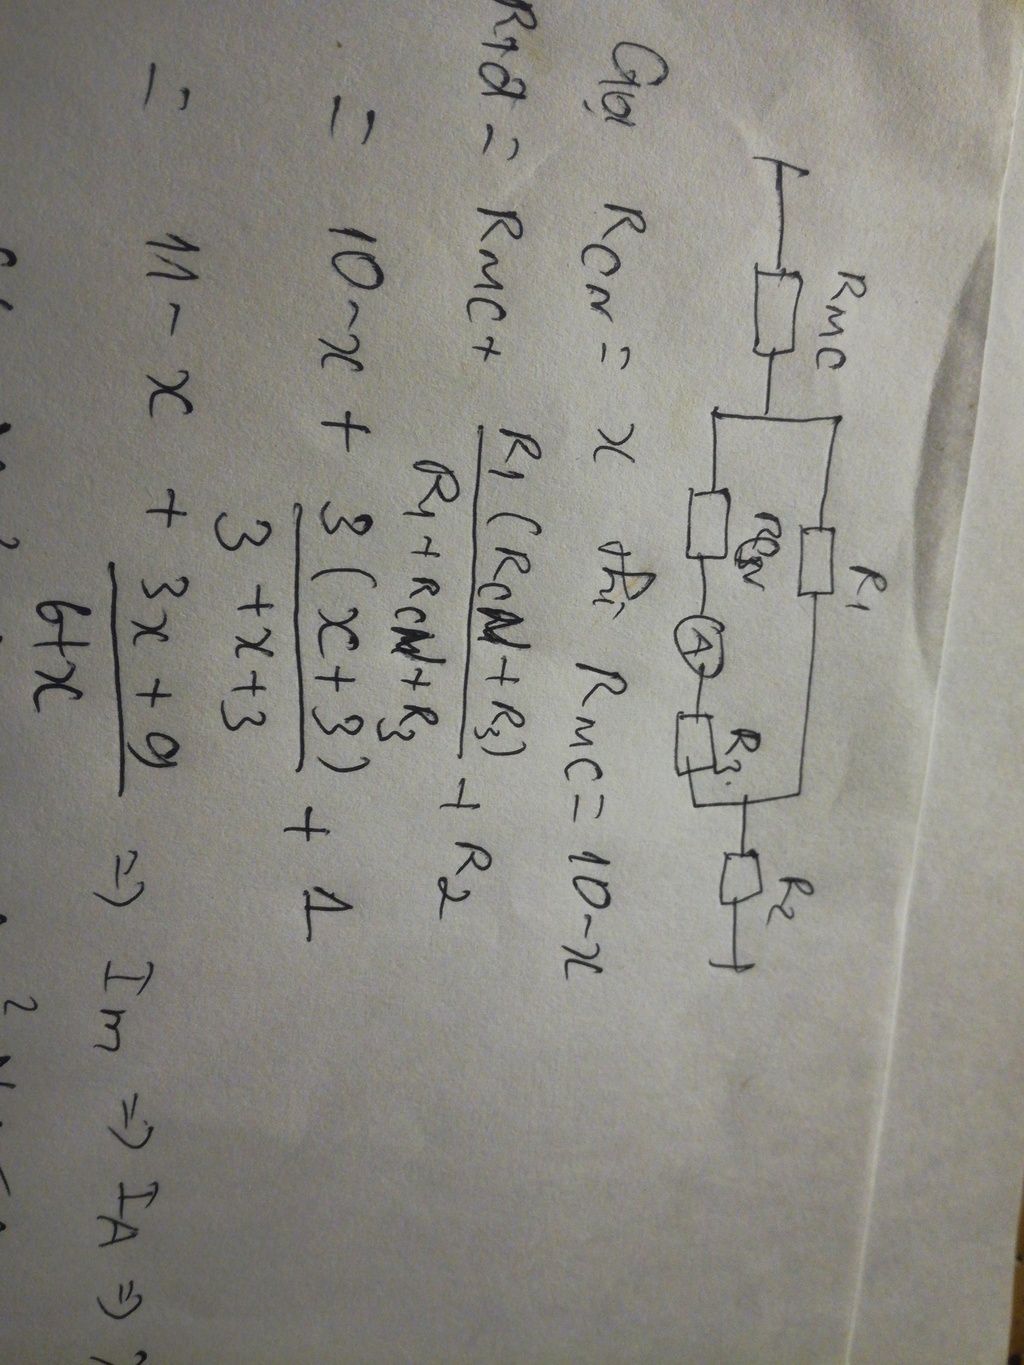 RMC
R1
RCN
A
R3
R2
Gọi RCN = x thì RMC = 10 - x
Rtđ = RMC + R1(RCN + R3) / R1 + RCN + R3 + R2
= 10 - x + 3(x + 3) / 3 + x + 3 + 1
= 11 - x + 3x + 9 / 6 + x => Im => IA =>